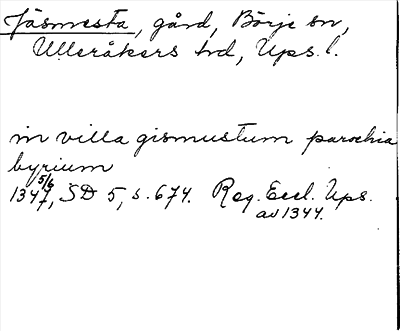 Jäsmesta, gård, Börje sn,
Ulleråkers hd, Ups. l.
in villa gismustum parochia
byrium
1347 5/6, SD 5, s. 674. Reg. Eccl. Ups.
av 1344.